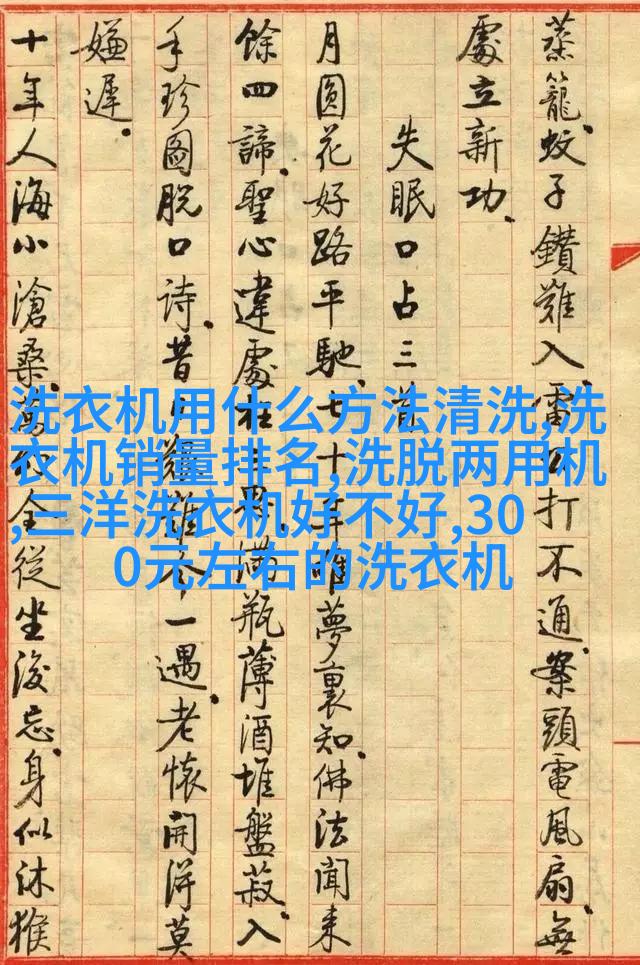 蒸籠.蚊子鑽難入.雷打不通.案頭電風扇.無
處立新功.
失眠口占三首
月圓花好路平馳.七十年唯夢裏知.佛法聞来
餘四諦.聖心違處在满瓶薄酒堆盤菽.入
手珍圖脱口詩.昔難今一遇.老懷開得莫
嫌遲.
十年人海小滄桑.萬全從坐後忘.身似沐猴
洗衣机用什么方法清洗,洗
衣机销量排名,洗脱两用机
,三洋洗衣机好不好,30
0元左右的洗衣机